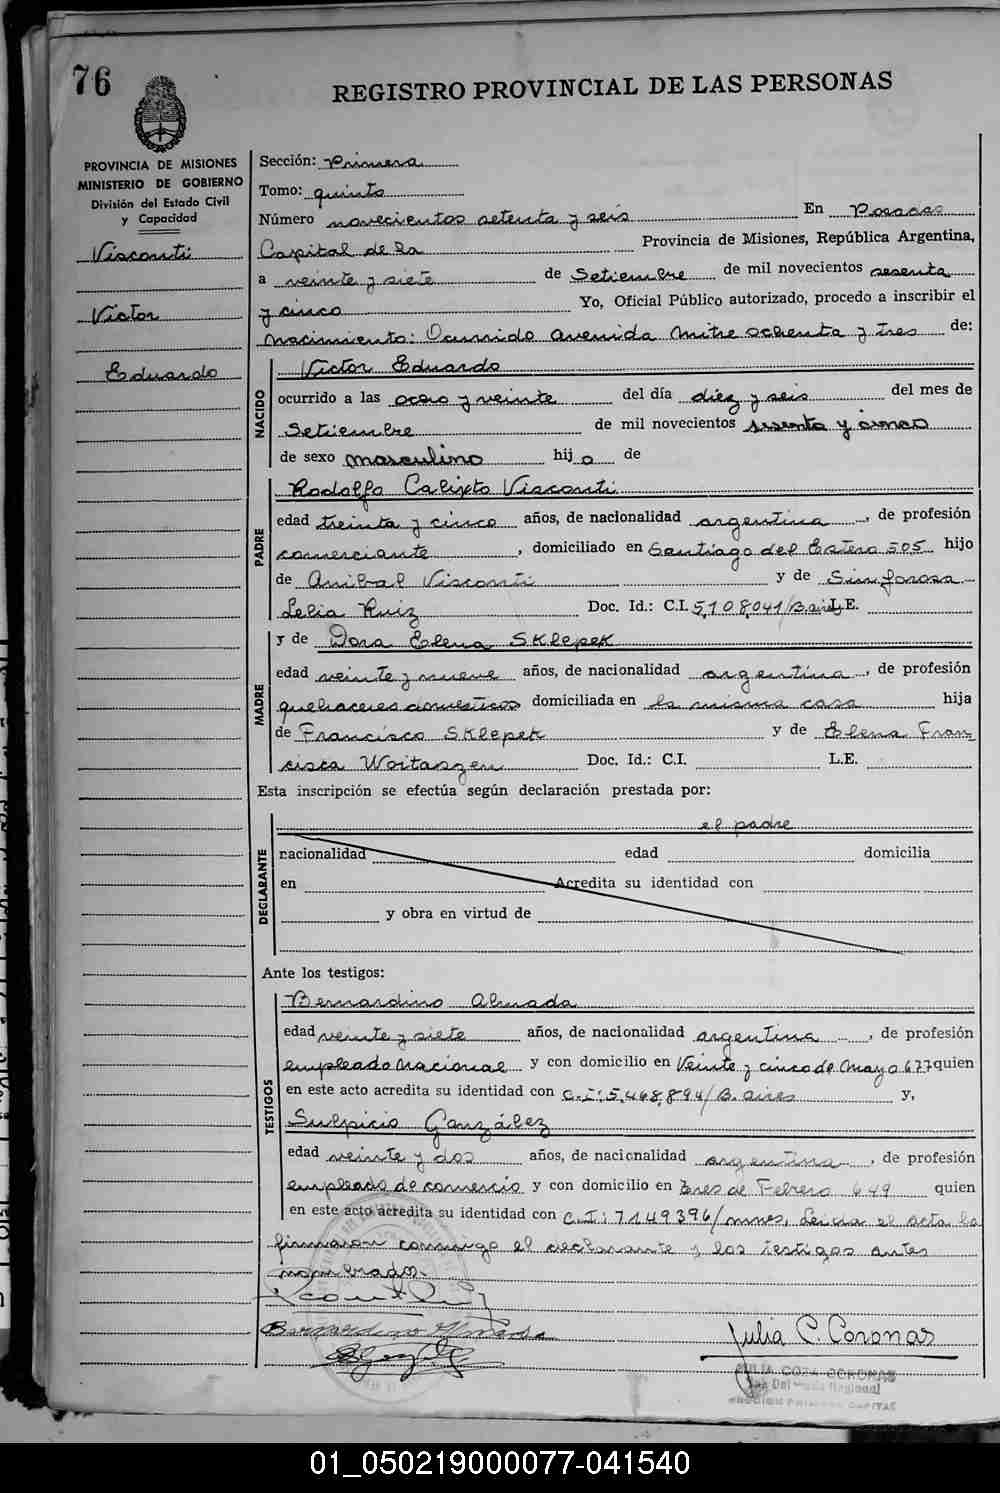 76
REGISTRO PROVINCIAL DE LAS PERSONAS
PROVINCIA DE MISIONES
MINISTERIO DE GOBIERNO
División del Estado Civil
y Capacidad
Visconti
Victor
Eduardo
Sección: Primera
Tomo: quinto
Número novecientos setenta y seis En Posadas
Capital de la Provincia de Misiones, República Argentina,
a veinte y siete de Setiembre de mil novecientos sesenta
y cinco Yo, Oficial Público autorizado, procedo a inscribir el
nacimiento: Ocurrido avenida mitre ochenta y tres de:
NACIDO
Victor Eduardo
ocurrido a las ocho y veinte del día diez y seis del mes de
Setiembre de mil novecientos sesenta y cinco
de sexo masculino hijo de
PADRE
Rodolfo Calixto Visconti
edad treinta y cinco años, de nacionalidad argentina, de profesión
comerciante, domiciliado en Santiago del Estero 505 hijo
de Anibal Visconti y de Sinforosa
Lelia Ruiz Doc. Id.: C.I. 5,108,041/B.aires L.E.
MADRE
y de Dora Elena Sklepek
edad veinte y nueve años, de nacionalidad argentina, de profesión
quehaceres domésticos domiciliada en la misma casa hija
de Francisco Sklepek y de Elena Fran-
cisca Woitaszen Doc. Id.: C.I. L.E.
Esta inscripción se efectúa según declaración prestada por:
el padre
DECLARANTE
nacionalidad edad domicilia
en Acredita su identidad con
y obra en virtud de
Ante los testigos:
TESTIGOS
Bernardino Almada
edad veinte y siete años, de nacionalidad argentina, de profesión
empleado nacional y con domicilio en Veinte y cinco de Mayo 677 quien
en este acto acredita su identidad con C.I: 5,468,894/B. aires y,
Sulpicio González
edad veinte y dos años, de nacionalidad argentina, de profesión
empleado de comercio y con domicilio en Tres de Febrero 649 quien
en este acto acredita su identidad con C.I: 7149396/mnes. Leida el acta la
firmaron conmigo el declarante y los testigos antes
nombrados.
Bernardino Almada
Julia C. Coronas
JULIA COZA CORONAS
01_050219000077-041540